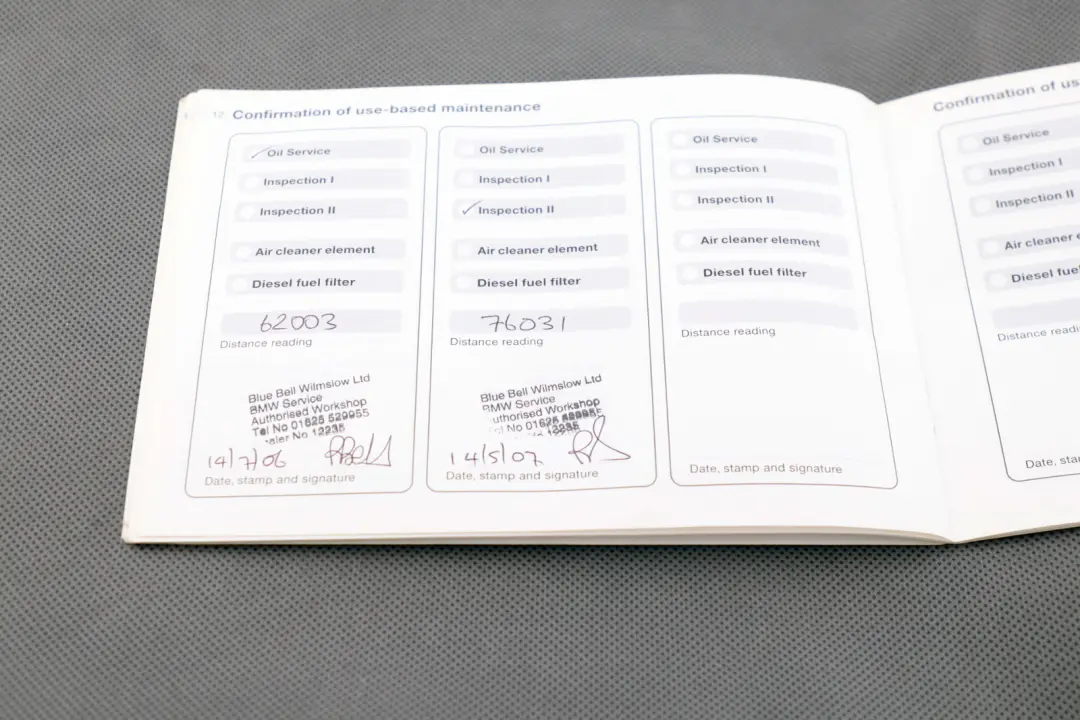 12 Confirmation of use-based maintenance
Oil Service
Inspection I
Inspection II
Air cleaner element
Diesel fuel filter
62003
Distance reading
Blue Bell Wilmslow Ltd
BMW Service
Authorised Workshop
Tel No 01625 529955
aler No 12235
14/7/06
Date, stamp and signature
Oil Service
Inspection I
Inspection II
Air cleaner element
Diesel fuel filter
76031
Distance reading
Blue Bell Wilmslow Ltd
BMW Service
uthorised Workshop
No 01625
12235
14/5/07
Date, stamp and signature
Oil Service
Inspection I
Inspection II
Air cleaner element
Diesel fuel filter
Distance reading
Date, stamp and signature
Confirmation of us
Oil Service
Inspection I
Inspection II
Air cleaner e
Diesel fuel
Distance readi
Date, sta